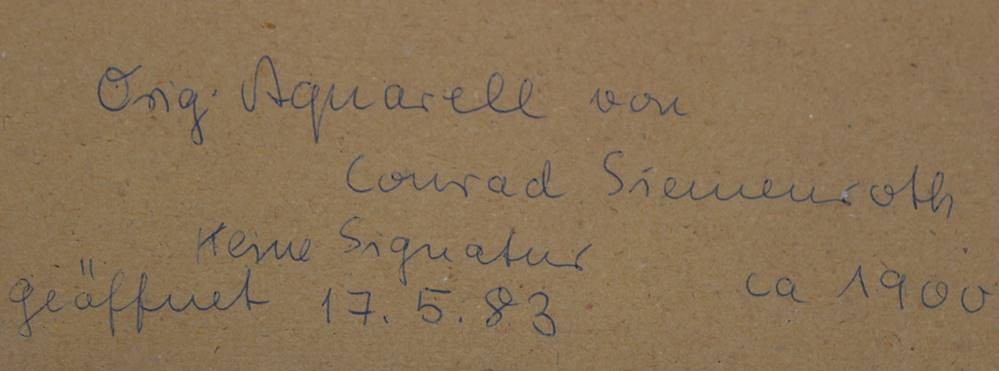 Orig. Aquarell von
Conrad Siemenroth
Keine Signatur
geöffnet 17. 5. 83 ca 1900